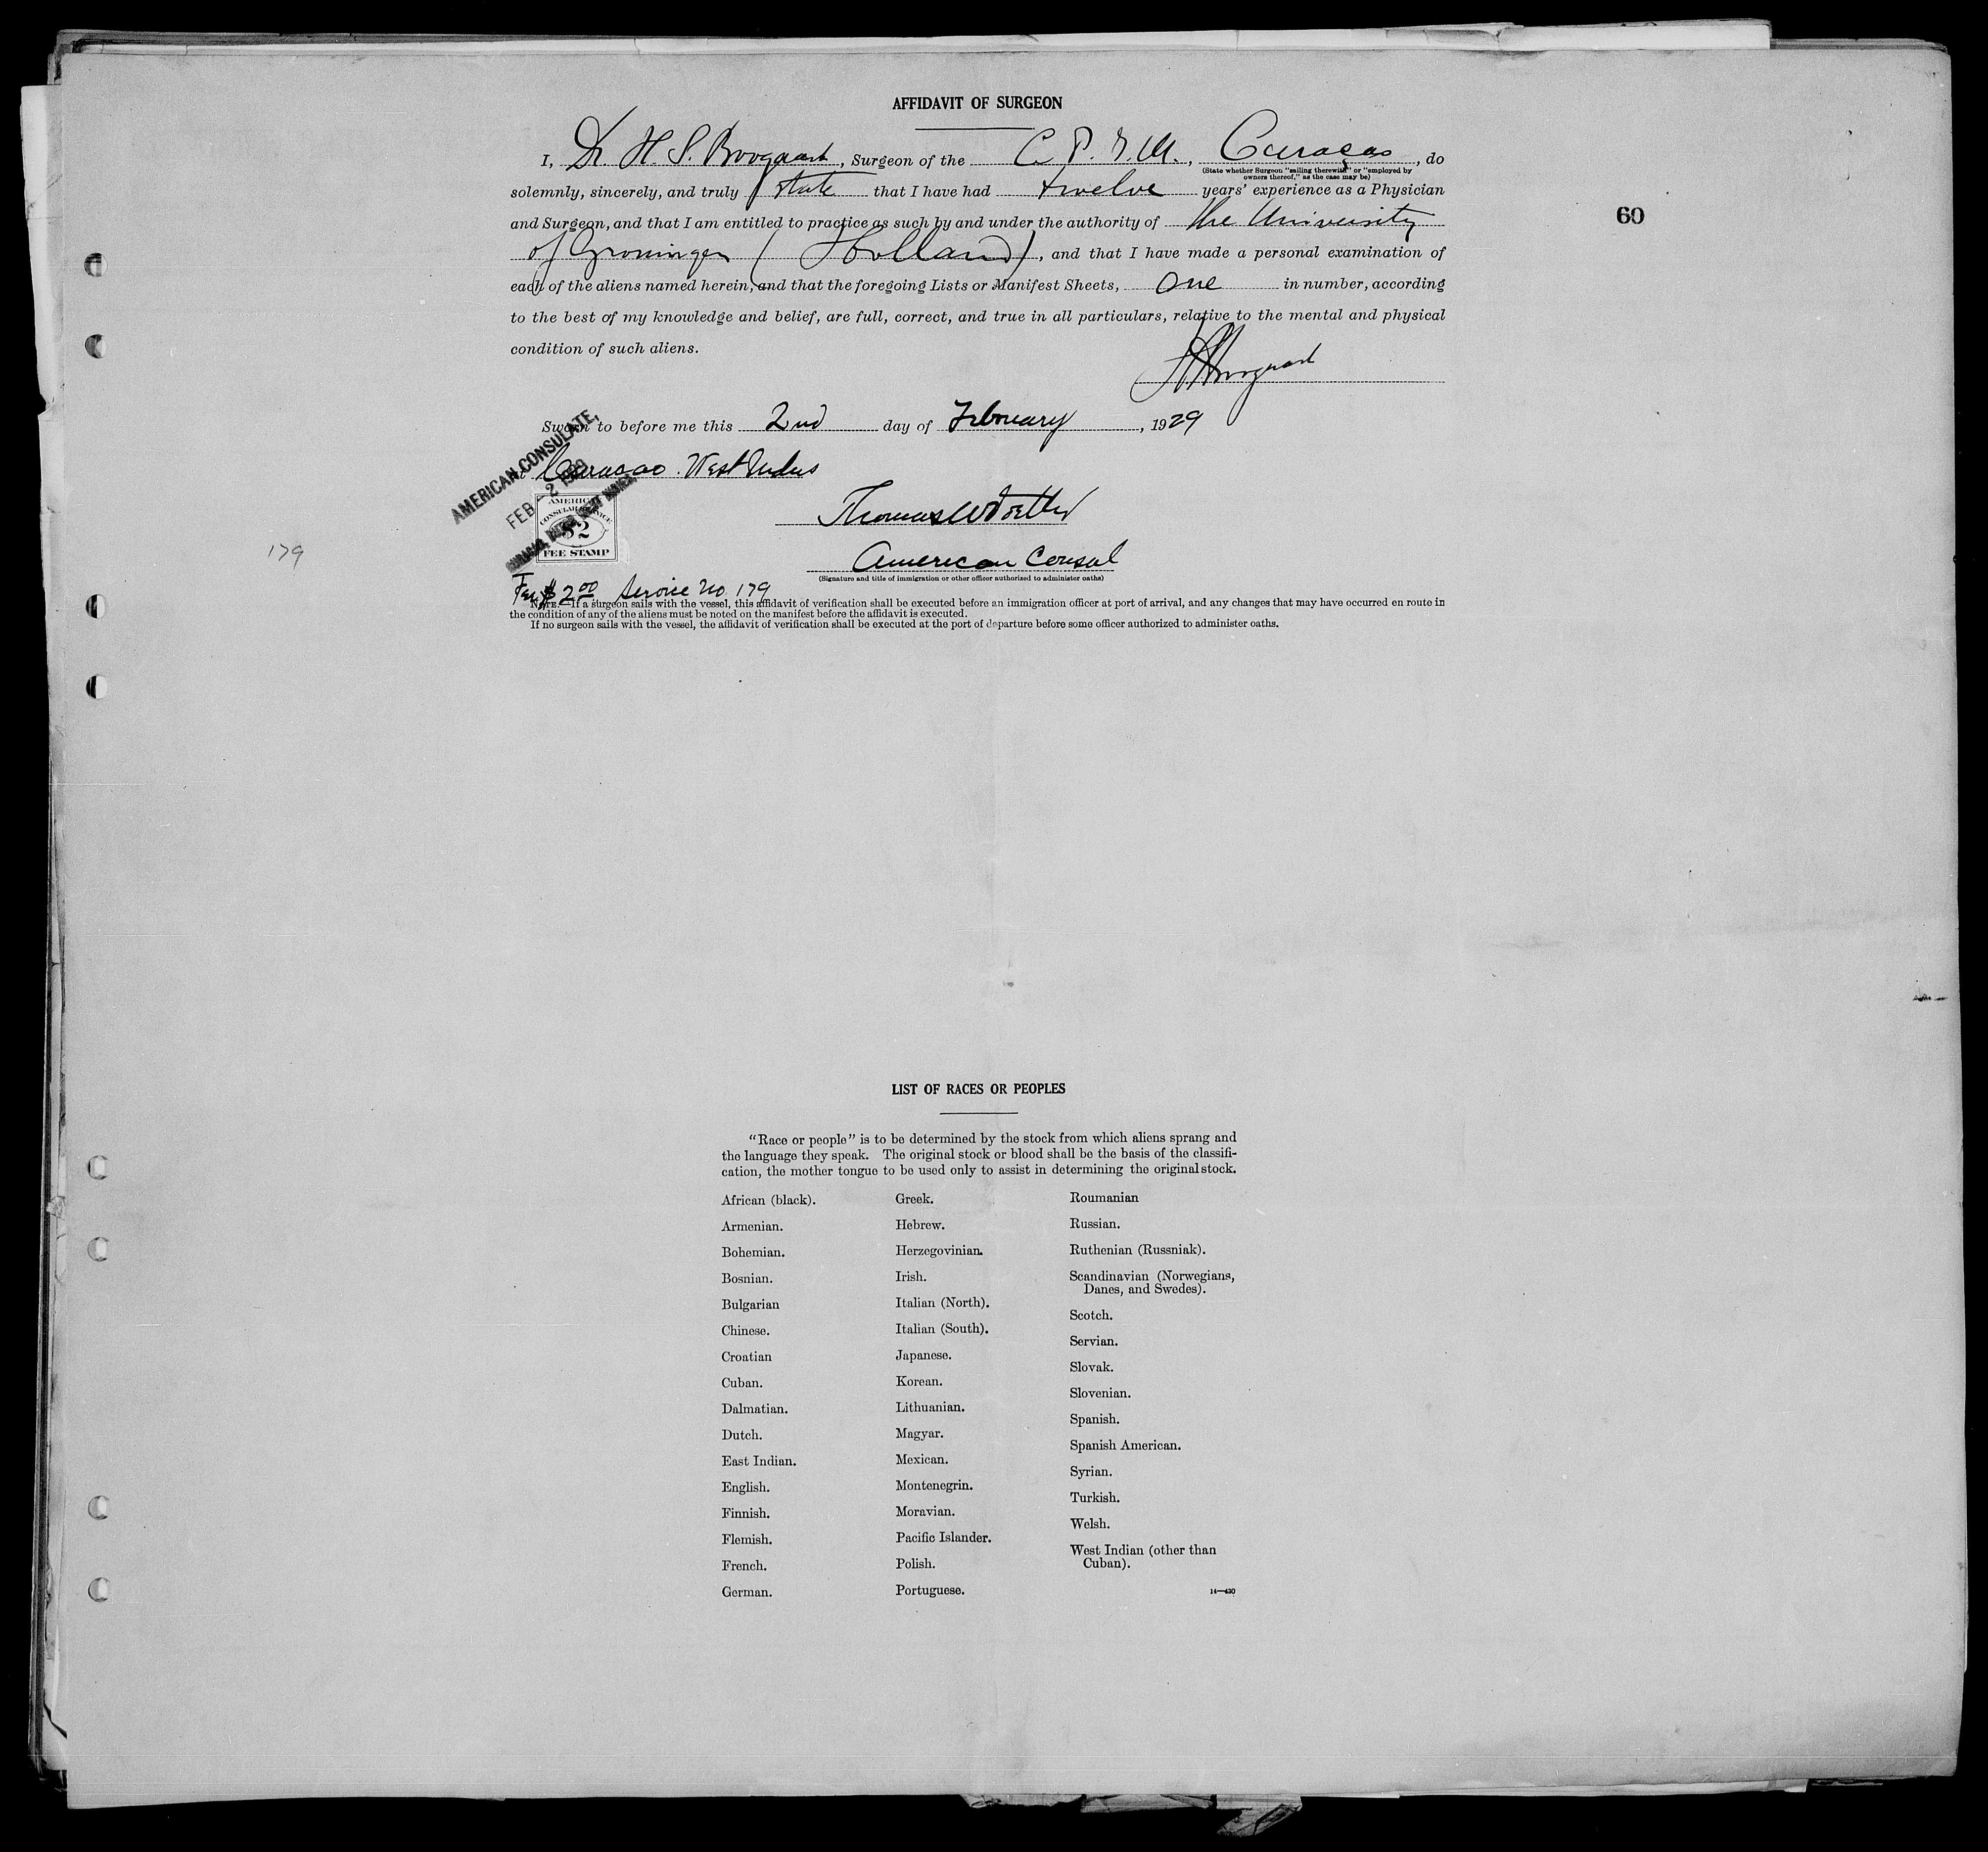 AFFIDAVIT OF SURGEON
I, Dr. H. S. Boogaart, Surgeon of the C. P. I. M., Curaçao, do
(State whether Surgeon "sailing therewith" or "employed by
owners thereof," as the case may be)
solemnly, sincerely, and truly state that I have had twelve years' experience as a Physician
and Surgeon, and that I am entitled to practice as such by and under the authority of the University
60
of Groningen (Holland), and that I have made a personal examination of
each of the aliens named herein, and that the foregoing Lists or Manifest Sheets, one in number, according
to the best of my knowledge and belief, are full, correct, and true in all particulars, relative to the mental and physical
condition of such aliens.
Sworn to before me this 2nd day of February, 1929
Curacao. West Indies
AMERICAN CONSULATE,
FEB - 2 1929
CURACAO, DUTCH WEST INDIES.
AMERICAN
CONSULAR SERVICE
$2
FEE STAMP
Thomas W
American Consul
(Signature and title of immigration or other officer authorized to administer oaths)
179
Fee $2.00 Service No. 179
NOTE.—If a surgeon sails with the vessel, this affidavit of verification shall be executed before an immigration officer at port of arrival, and any changes that may have occurred en route in
the condition of any of the aliens must be noted on the manifest before the affidavit is executed.
If no surgeon sails with the vessel, the affidavit of verification shall be executed at the port of departure before some officer authorized to administer oaths.
LIST OF RACES OR PEOPLES
"Race or people" is to be determined by the stock from which aliens sprang and
the language they speak. The original stock or blood shall be the basis of the classifi-
cation, the mother tongue to be used only to assist in determining the original stock.
African (black).
Armenian.
Bohemian.
Bosnian.
Bulgarian
Chinese.
Croatian
Cuban.
Dalmatian.
Dutch.
East Indian.
English.
Finnish.
Flemish.
French.
German.
Greek.
Hebrew.
Herzegovinian.
Irish.
Italian (North).
Italian (South).
Japanese.
Korean.
Lithuanian.
Magyar.
Mexican.
Montenegrin.
Moravian.
Pacific Islander.
Polish.
Portuguese.
Roumanian
Russian.
Ruthenian (Russniak).
Scandinavian (Norwegians,
Danes, and Swedes).
Scotch.
Servian.
Slovak.
Slovenian.
Spanish.
Spanish American.
Syrian.
Turkish.
Welsh.
West Indian (other than
Cuban).
14—430